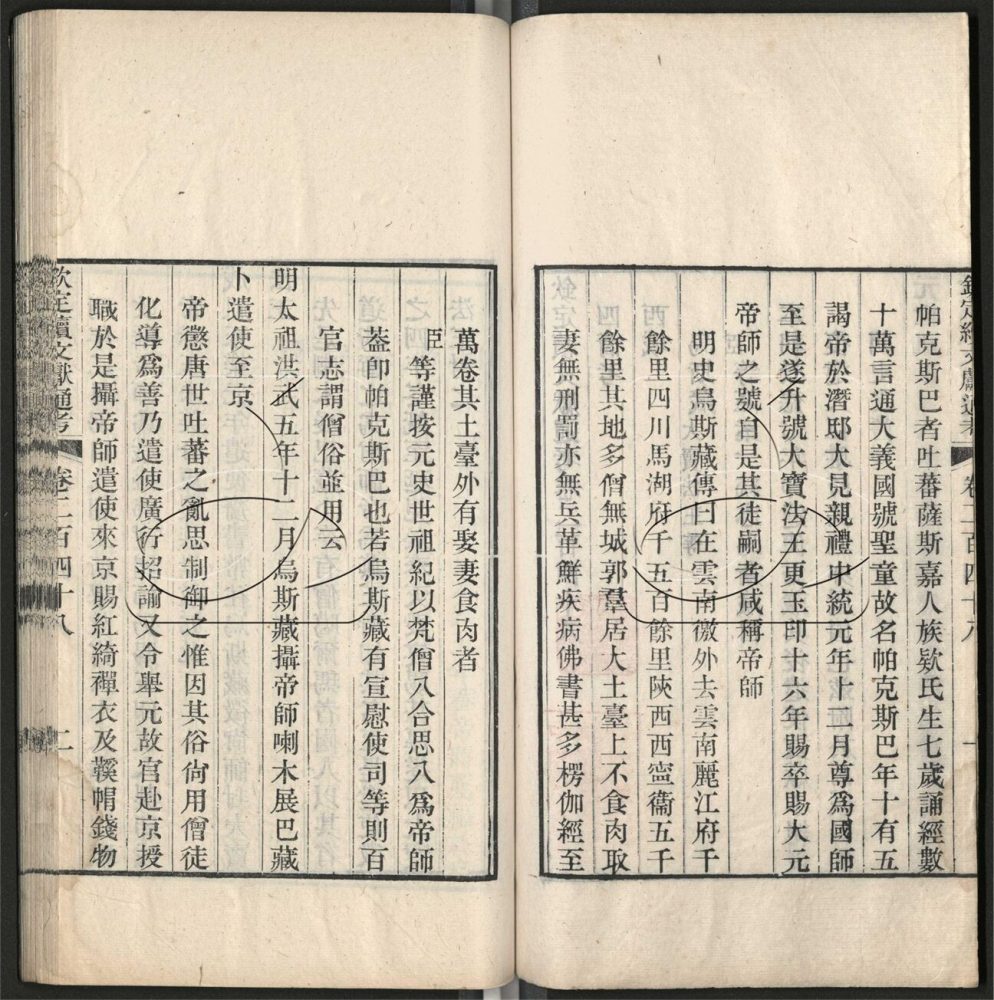 帕克斯巴者吐蕃薩斯嘉人族欵氏生七歲誦經數
十萬言通大義國號聖童故名帕克斯巴年十有五
謁帝於潛邸大見親禮中統元年十二月尊爲國師
至是遂升號大寶法王更玉印十六年賜卒賜大元
帝師之號自是其徒嗣者咸稱帝師
明史烏斯藏傳曰在雲南徼外去雲南麗江府千
餘里四川馬湖府千五百餘里陜西西寧衞五千
餘里其地多僧無城郭羣居大土臺上不食肉取
妻無刑罰亦無兵革鮮疾病佛書甚多楞伽經至
萬卷其土臺外有娶妻食肉者
臣等謹按元史世祖紀以梵僧八合思八爲帝師
葢卽帕克斯巴也若烏斯藏有宣慰使司等則百
官志謂僧俗並用云
明太祖洪武五年十二月烏斯藏攝帝師喇木展巴藏
卜遣使至京
帝懲唐世吐蕃之亂思制御之惟因其俗尙用僧徒
化導爲善乃遣使廣行招諭又令舉元故官赴京授
職於是攝帝師遣使來京賜紅綺禪衣及鞵帽錢物
欽定續文獻通考 卷二百四十八 二